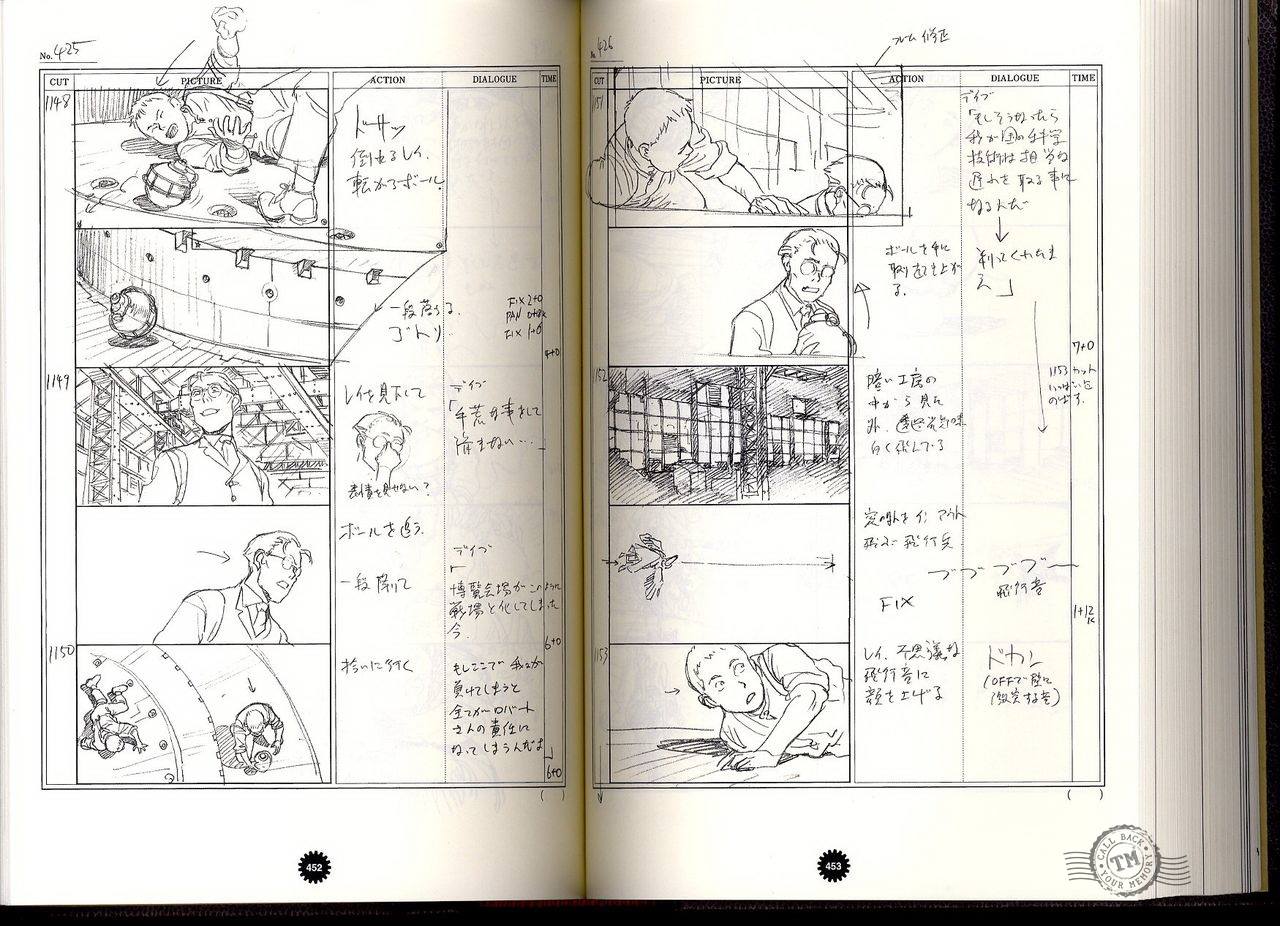 No. 425
CUT PICTURE ACTION DIALOGUE TIME
1148
ドサッ
倒れるレイ.
転がるボール.
一段落ちる.
ゴトリ..
FIX 2+0
PAN
FIX 1+0
4+0
1149
レイを見下して
デイブ
「手荒な事をして
済まない…
表情を見せない?
ボールを追う.
一段降りて
デイブ
博覧会場がこのように
戦場と化してしまった
今.
6+0
1150
拾いに行く
もしここで我々が
負けてしまうと
全てがロバート
さんの責任に
なってしまうんだよ」
6+0
( )
452
426
フレーム修正
CUT PICTURE ACTION DIALOGUE TIME
1151
デイブ
「もしそうなったら
我が国の科学
技術は相当な
遅れを取る事に
なるんだ
判ってくれたま
え」
ボールを手に
取り立ち上が
る.
7+0
1153カット
いっぱいまで
のばす.
1152
暗い工房の
中から見た
外.
白く飛んでいる
窓の外をイン アウト
飛ぶ飛行兵
ブブブブー
飛行音
FIX
1+12K
1153
レイ、不思議な
飛行音に
顔を上げる
ドカン
(OFFで壁に
激突する音)
( )
453
CALL BACK
TM
YOUR MEMORY